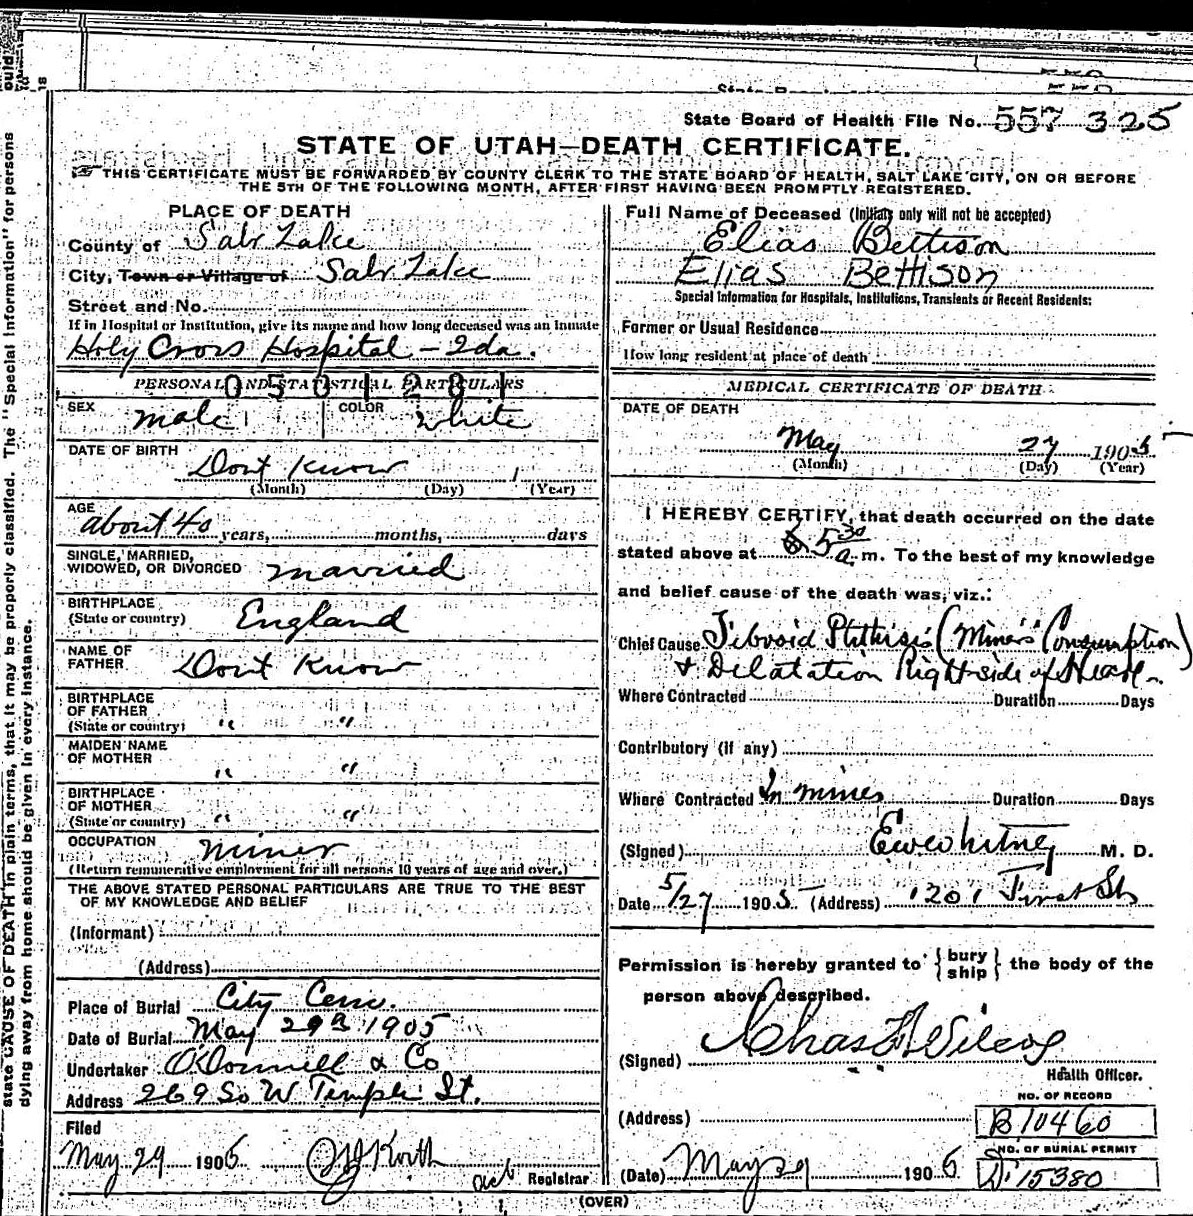 State Board of Health File No. 557 325
STATE OF UTAH—DEATH CERTIFICATE.
THIS CERTIFICATE MUST BE FORWARDED BY COUNTY CLERK TO THE STATE BOARD OF HEALTH, SALT LAKE CITY, ON OR BEFORE
THE 5TH OF THE FOLLOWING MONTH, AFTER FIRST HAVING BEEN PROMPTLY REGISTERED.
PLACE OF DEATH
County of Salt Lake
City, Town or Village of Salt Lake
Street and No.
If in Hospital or Institution, give its name and how long deceased was an inmate
Holy Cross Hospital - 2da.
PERSONAL AND STATISTICAL PARTICULARS
0501281
SEX male COLOR white
DATE OF BIRTH
Dont Know
(Month) (Day) (Year)
AGE
about 40 years, months, days
SINGLE, MARRIED,
WIDOWED, OR DIVORCED married
BIRTHPLACE
(State or country) England
NAME OF
FATHER Dont Know
BIRTHPLACE
OF FATHER
(State or country) " "
MAIDEN NAME
OF MOTHER
" "
BIRTHPLACE
OF MOTHER
(State or country) " "
OCCUPATION
miner
(Return remunerative employment for all persons 10 years of age and over.)
THE ABOVE STATED PERSONAL PARTICULARS ARE TRUE TO THE BEST
OF MY KNOWLEDGE AND BELIEF
(Informant)
(Address)
Place of Burial City Cem.
Date of Burial May 29th 1905
Undertaker O'Donnell & Co
Address 269 So W Temple St.
Filed
May 29 1905
act Registrar
Full Name of Deceased (Initials only will not be accepted)
Elias Bettison
Elias Bettison
Special Information for Hospitals, Institutions, Transients or Recent Residents:
Former or Usual Residence
How long resident at place of death
MEDICAL CERTIFICATE OF DEATH
DATE OF DEATH
May 27 1905
(Month) (Day) (Year)
I HEREBY CERTIFY, that death occurred on the date
stated above at 5 30 a. m. To the best of my knowledge
and belief cause of the death was, viz.:
Chief Cause Fibroid Phthisis (Miners Consumption)
+ Dilatation Right side of Heart
Where Contracted Duration Days
Contributory (if any)
Where Contracted In mines Duration Days
(Signed) Ewewhitney M. D.
Date 5/27 1905 (Address) 1201 First St
Permission is hereby granted to {bury
ship} the body of the
person above described.
(Signed) Chas F Wilcox
Health Officer.
NO. OF RECORD
(Address) B10460
NO. OF BURIAL PERMIT
(Date) May 29 1905 D 15380
(OVER)
state CAUSE OF DEATH in plain terms, that it may be properly classified. The "Special Information" for persons
dying away from home should be given in every instance.